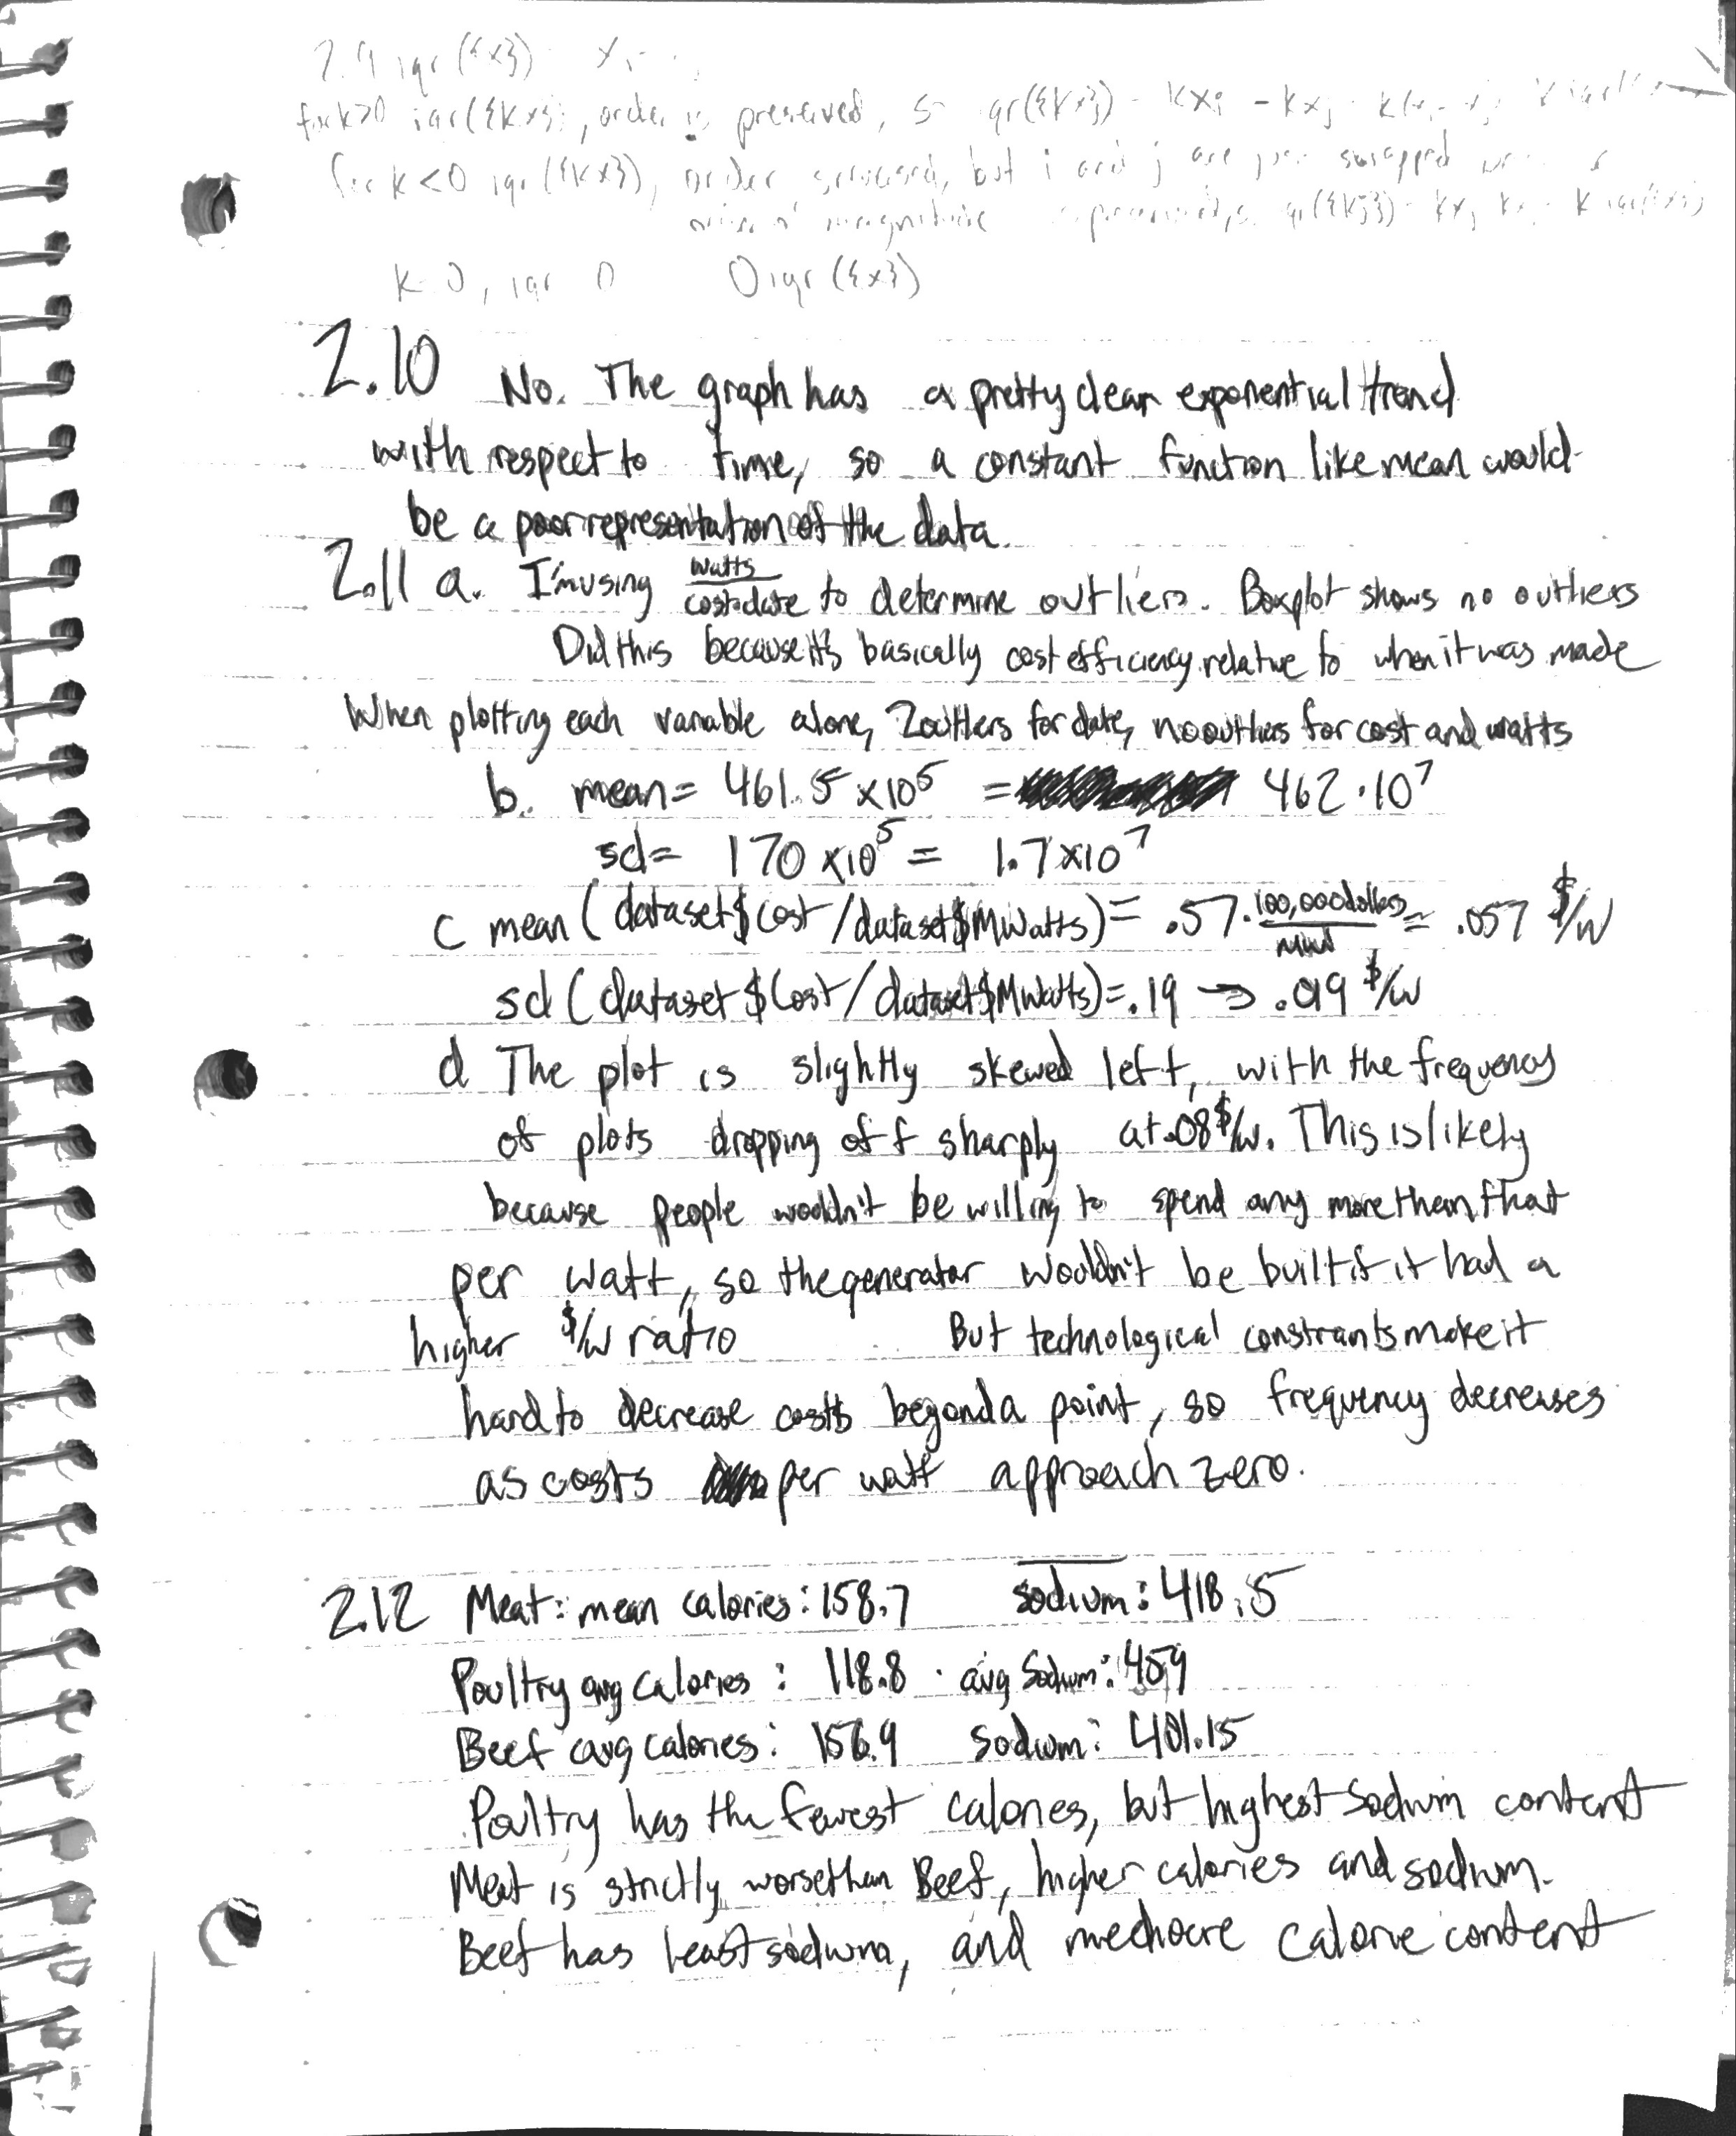 2.9 iqr({x}) x,
for k>0 iqr({kx}), order is preserved, iqr({kx}) - kxi - kxj
for k<0 iqr({kx}), order reversed, but i and j are just swapped
magnitude
k 0, iqr 0 0 iqr({x})
2.10 No. The graph has a pretty clear exponential trend
with respect to time, so a constant function like mean would
be a poor representation of the data.
2.11 a. I'm using watts/cost·date to determine outliers. Boxplot shows no outliers
Did this because it's basically cost efficiency relative to when it was made
When plotting each variable alone, 2 outliers for date, no outliers for cost and watts
b. mean = 461.5 x10^5 = 462·10^7
sd= 170 x10^5 = 1.7x10^7
c mean(dataset$Cost/dataset$MWatts)= .57·100,000 dollars/ = .057 $/W
sd(dataset$Cost/dataset$MWatts)=.19 → .019 $/W
d The plot is slightly skewed left, with the frequency
of plots dropping off sharply at .08 $/W. This is likely
because people wouldn't be willing to spend any more than that
per watt, so the generator wouldn't be built if it had a
higher $/W ratio But technological constraints make it
hard to decrease costs beyond a point, so frequency decreases
as costs per watt approach zero.
2.12 Meat: mean calories: 158.7 sodium: 418.5
Poultry avg calories: 118.8 · avg Sodium: 459
Beef avg calories: 156.9 sodium: 401.15
Poultry has the fewest calories, but highest sodium content
Meat is strictly worse than Beef, higher calories and sodium.
Beef has least sodium, and mediocre calorie content